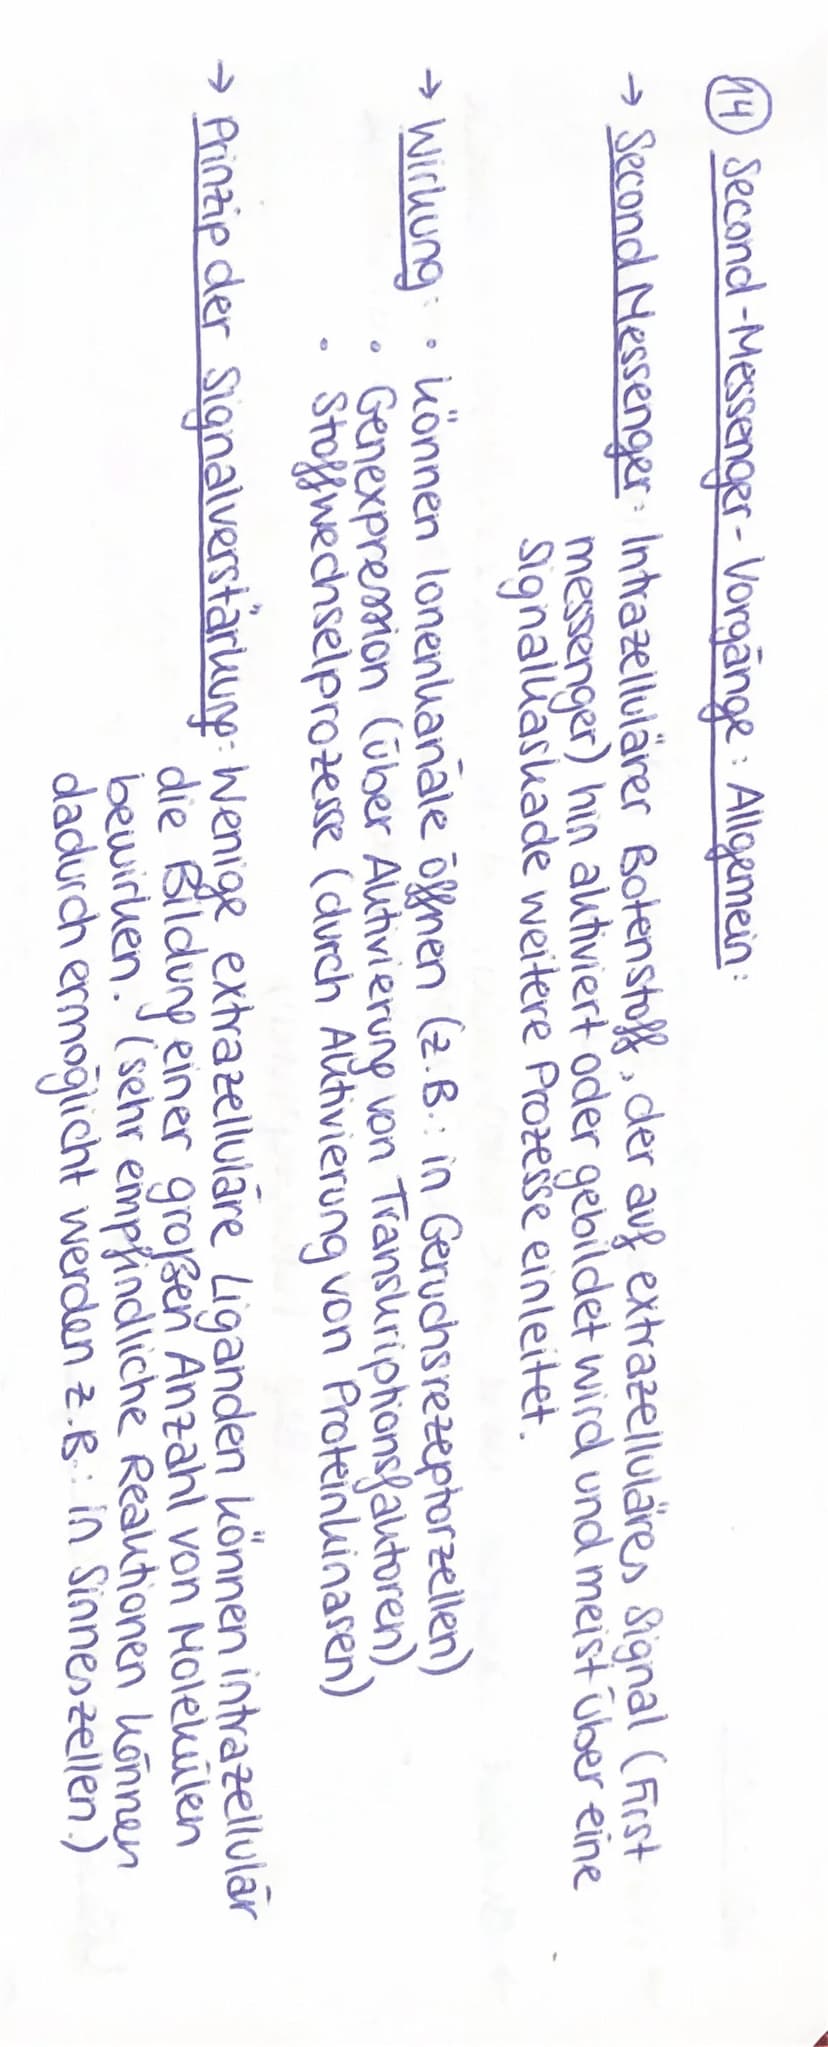 14 Second-Messenger-Vorgänge: Allgemein:
→ Second Messenger: Intrazellulärer Botenstoff, der auf extrazelluläres Signal (First
messenger) hin aktiviert oder gebildet wird und meist über eine
Signalkaskade weitere Prozesse einleitet.
→ Wirkung: • können Ionenkanäle öffnen (z.B.: in Geruchsrezeptorzellen)
• Genexpression (über Aktivierung von Transkriptionsfaktoren)
• Stoffwechselprozesse (durch Aktivierung von Proteinkinasen)
→ Prinzip der Signalverstärkung: Wenige extrazelluläre Liganden können intrazellulär
die Bildung einer großen Anzahl von Molekülen
bewirken. (sehr empfindliche Reaktionen können
dadurch ermöglicht werden z.B.: in Sinneszellen.)